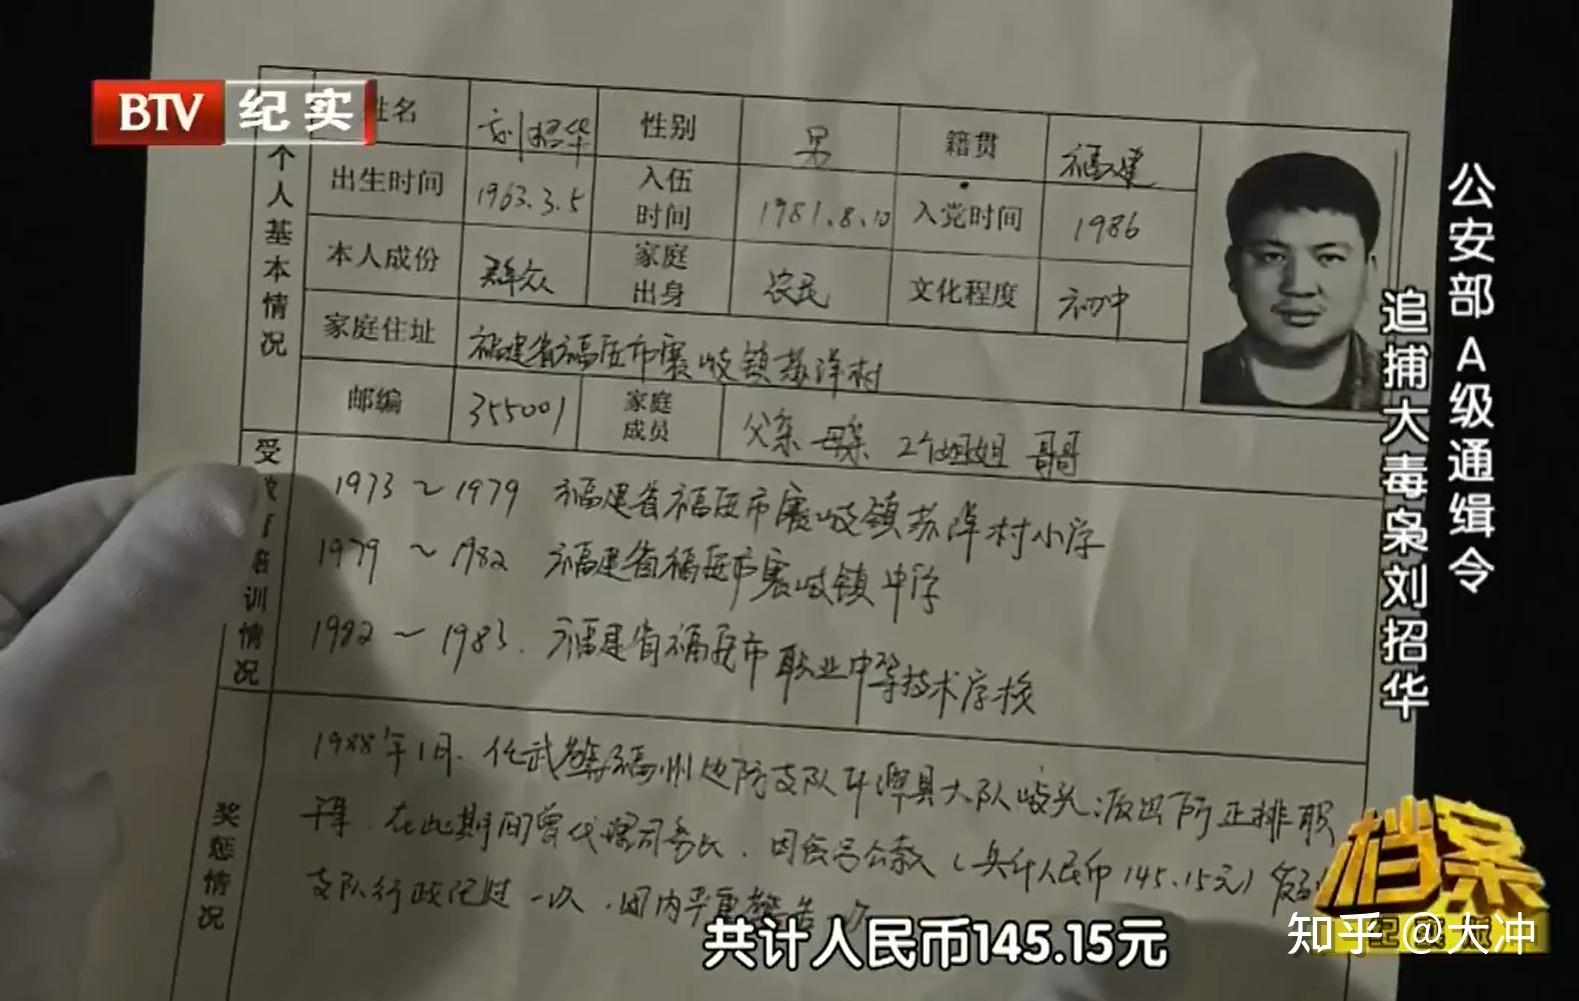 BTV 纪实
姓名 刘招华 性别 男 籍贯 福建
出生时间 1963.3.5 入伍时间 1981.8.10 入党时间 1986
本人成份 群众 家庭出身 农民 文化程度 初中
家庭住址 福建省福安市赛岐镇苏洋村
邮编 355001 家庭成员 父亲 母亲 2个姐姐 哥哥
个人基本情况
受 培训情况
1973～1979 福建省福安市赛岐镇苏洋村小学
1979～1982 福建省福安市赛岐镇中学
1982～1983. 福建省福安市职业中等技术学校
奖惩情况
1988年1月.任武警福州边防支队 大队岐头派出所正排职
在此期间曾代 司务长.因 公款(共计人民币145.15元)
支队行政记过一次. 内严重警告
公安部A级通缉令
追捕大毒枭刘招华
档案
共计人民币145.15元
知乎 @大冲